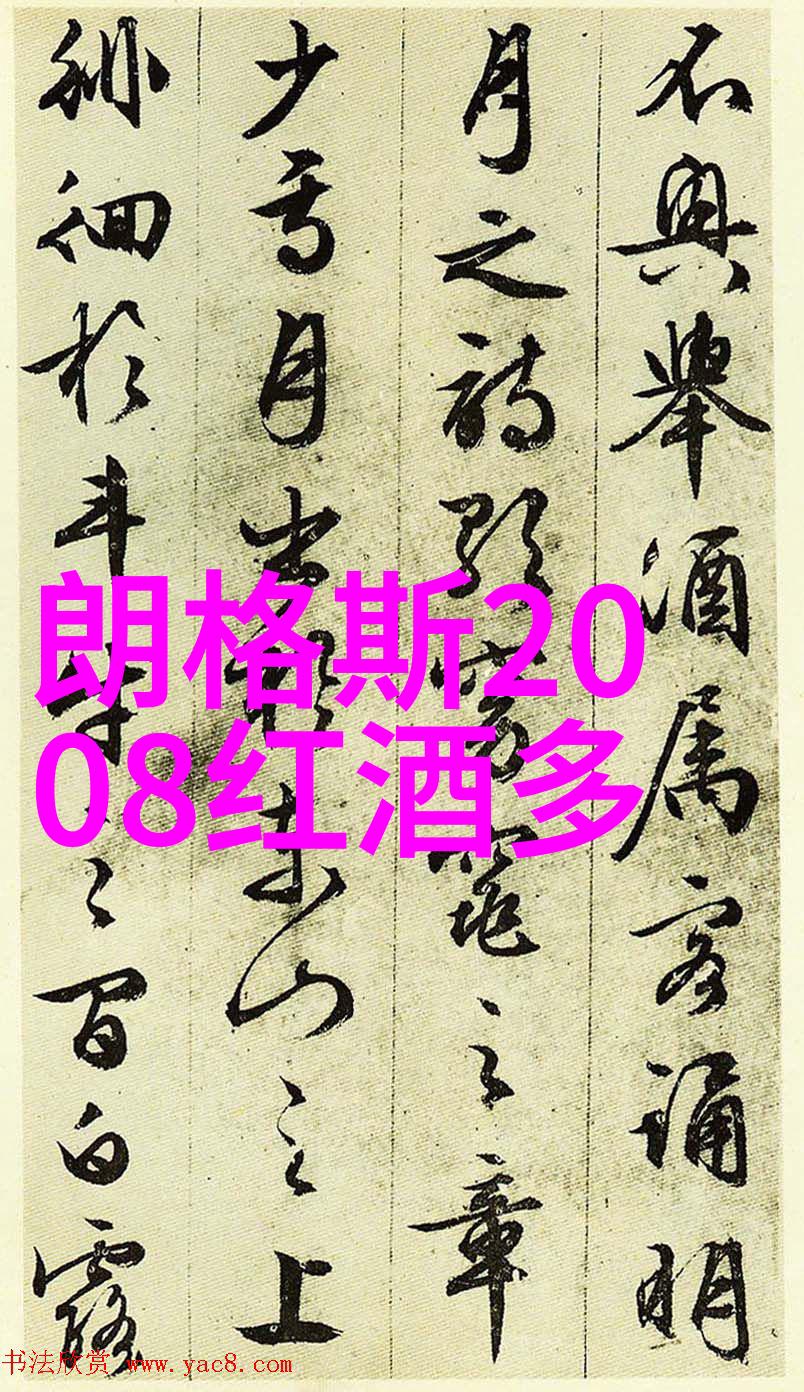 不興舉酒属客誦明
月之詩歌窈窕之章
少焉月出於東山之上
徘徊於斗牛之間白露
朗格斯20
08红酒多
书法欣赏 www.yac8.com